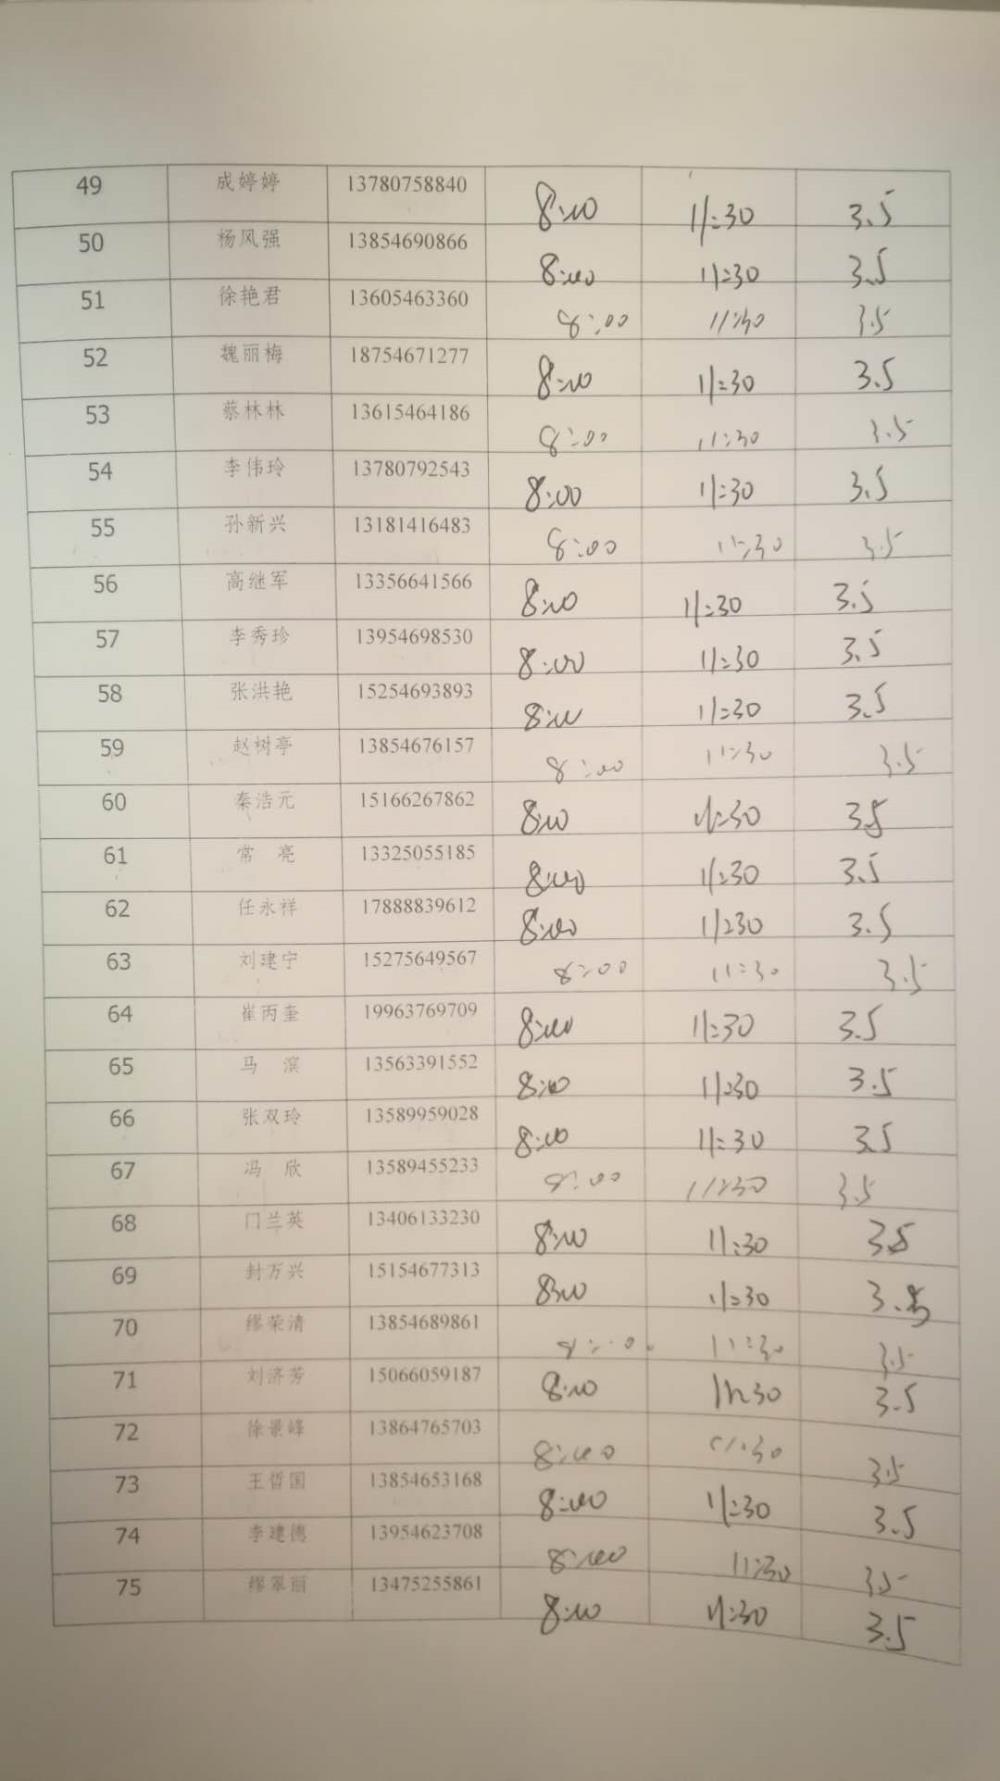 49 成婷婷 13780758840 8:00 11:30 3.5
50 杨凤强 13854690866 8:00 11:30 3.5
51 徐艳君 13605463360 8:00 11:30 3.5
52 魏丽梅 18754671277 8:00 11:30 3.5
53 蔡林林 13615464186 8:00 11:30 3.5
54 李伟玲 13780792543 8:00 11:30 3.5
55 孙新兴 13181416483 8:00 11:30 3.5
56 高继军 13356641566 8:00 11:30 3.5
57 李秀珍 13954698530 8:00 11:30 3.5
58 张洪艳 15254693893 8:00 11:30 3.5
59 赵树亭 13854676157 8:00 11:30 3.5
60 秦浩元 15166267862 8:00 11:30 3.5
61 常 亮 13325055185 8:00 11:30 3.5
62 任永祥 17888839612 8:00 11:30 3.5
63 刘建宁 15275649567 8:00 11:30 3.5
64 崔丙奎 19963769709 8:00 11:30 3.5
65 马 滨 13563391552 8:00 11:30 3.5
66 张双玲 13589959028 8:00 11:30 3.5
67 冯 欣 13589455233 8:00 11:30 3.5
68 门兰英 13406133230 8:00 11:30 3.5
69 封万兴 15154677313 8:00 11:30 3.5
70 缪荣清 13854689861 8:00 11:30 3.5
71 刘济芳 15066059187 8:00 11:30 3.5
72 徐景峰 13864765703 8:00 11:30 3.5
73 王哲国 13854653168 8:00 11:30 3.5
74 李建德 13954623708 8:00 11:30 3.5
75 缪翠丽 13475255861 8:00 11:30 3.5